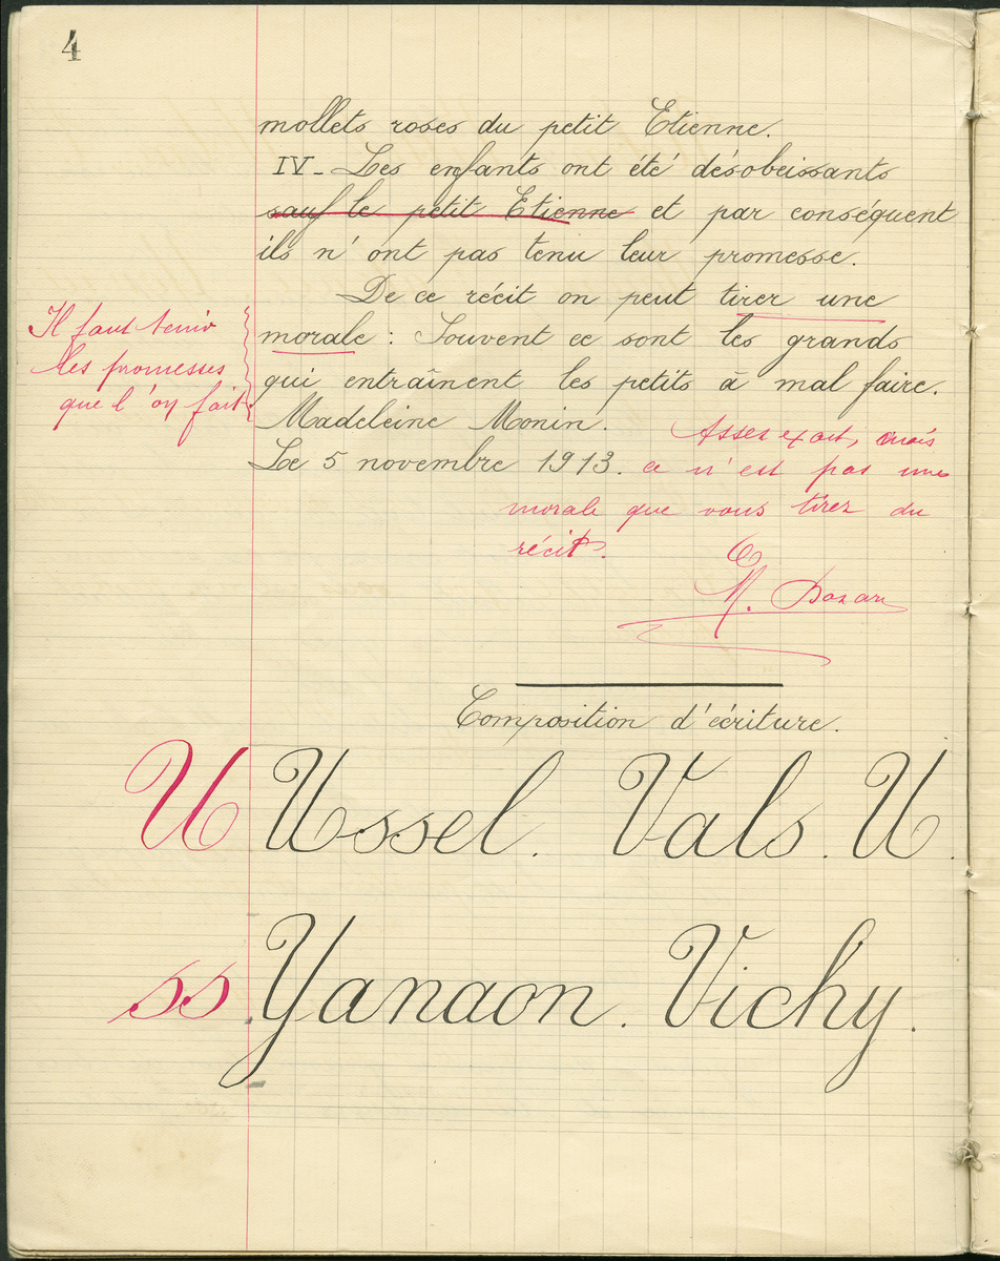 4
mollets roses du petit Etienne.
IV - Les enfants ont été désobeissants
sauf le petit Etienne et par conséquent
ils n'ont pas tenu leur promesse.
De ce récit on peut tirer une
morale : Souvent ce sont les grands
qui entraînent les petits à mal faire.
Il faut tenir
les promesses
que l'on fait
Madeleine Monin.
Le 5 novembre 1913.
Assez exact, mais
ce n'est pas une
morale que vous tirez du
récit.
M.
Composition d'écriture.
U Ussel. Vals. U.
ss Yanaon. Vichy.